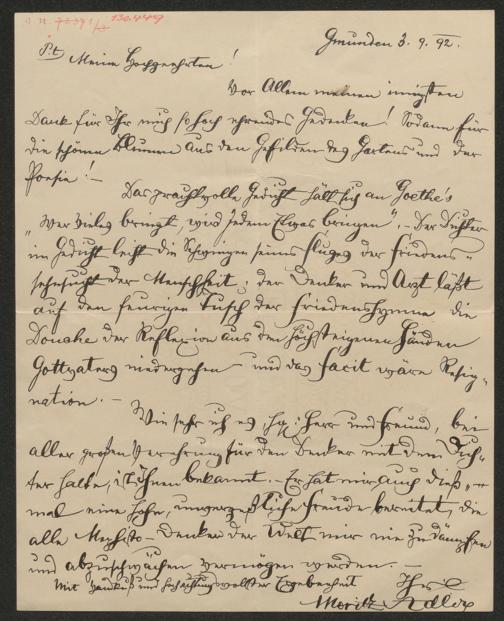 130.449
Gmunden 3. 9. 92.
P. t.
Meine Hochgeehrten!
Vor Allem meinen innigsten
Dank für Ihr mich so hoch ehrendes Gedenken! Sodann für
die schönen Blumen aus den Gefilden des Gartens und der
Poesie! –
Das prachtvolle Gedicht hält sich an Goethe's
„Wer Vieles bringt, wird Jedem Etwas bringen“. – Der Dichter
im Gedicht leiht die Schwingen seines Fluges der Friedens-
sehnsucht der Menschheit; der Denker und Arzt läßt
auf den feurigen Tusch der Friedenshymne die
Douche der Reflexion aus den höchsteigenen Händen
Gottvaters niedergehen – und das Facit wäre Resig-
nation. –
Wie sehr ich es, Herr und Freund, bei
aller großen Verehrung für den Denker mit dem Dich-
ter halte, ist Ihnen bekannt. – Er hat mir auch dieß-
mal eine hohe, unvergeßliche Freude bereitet, die
alle Mephisto-Denker der Welt mir nie zu dämpfen
und abzuschwächen vermögen werden. –
Mit Handkuß und hochachtungsvollster Ergebenheit
Ihr
Moritz Adler